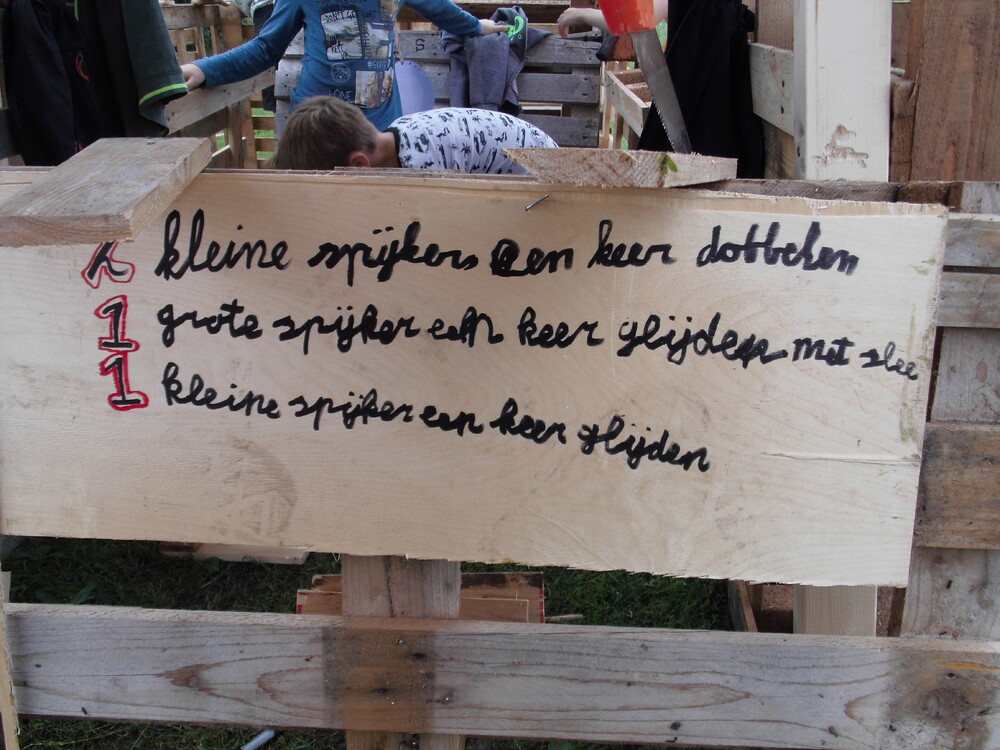 2 kleine spijkers een keer dobbelen
1 grote spijker een keer glijden met slee
1 kleine spijker een keer glijden